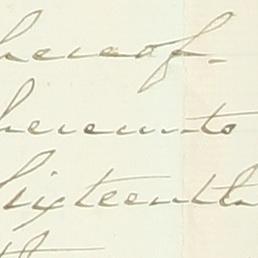 hereof.
hereunto
Sixteenth